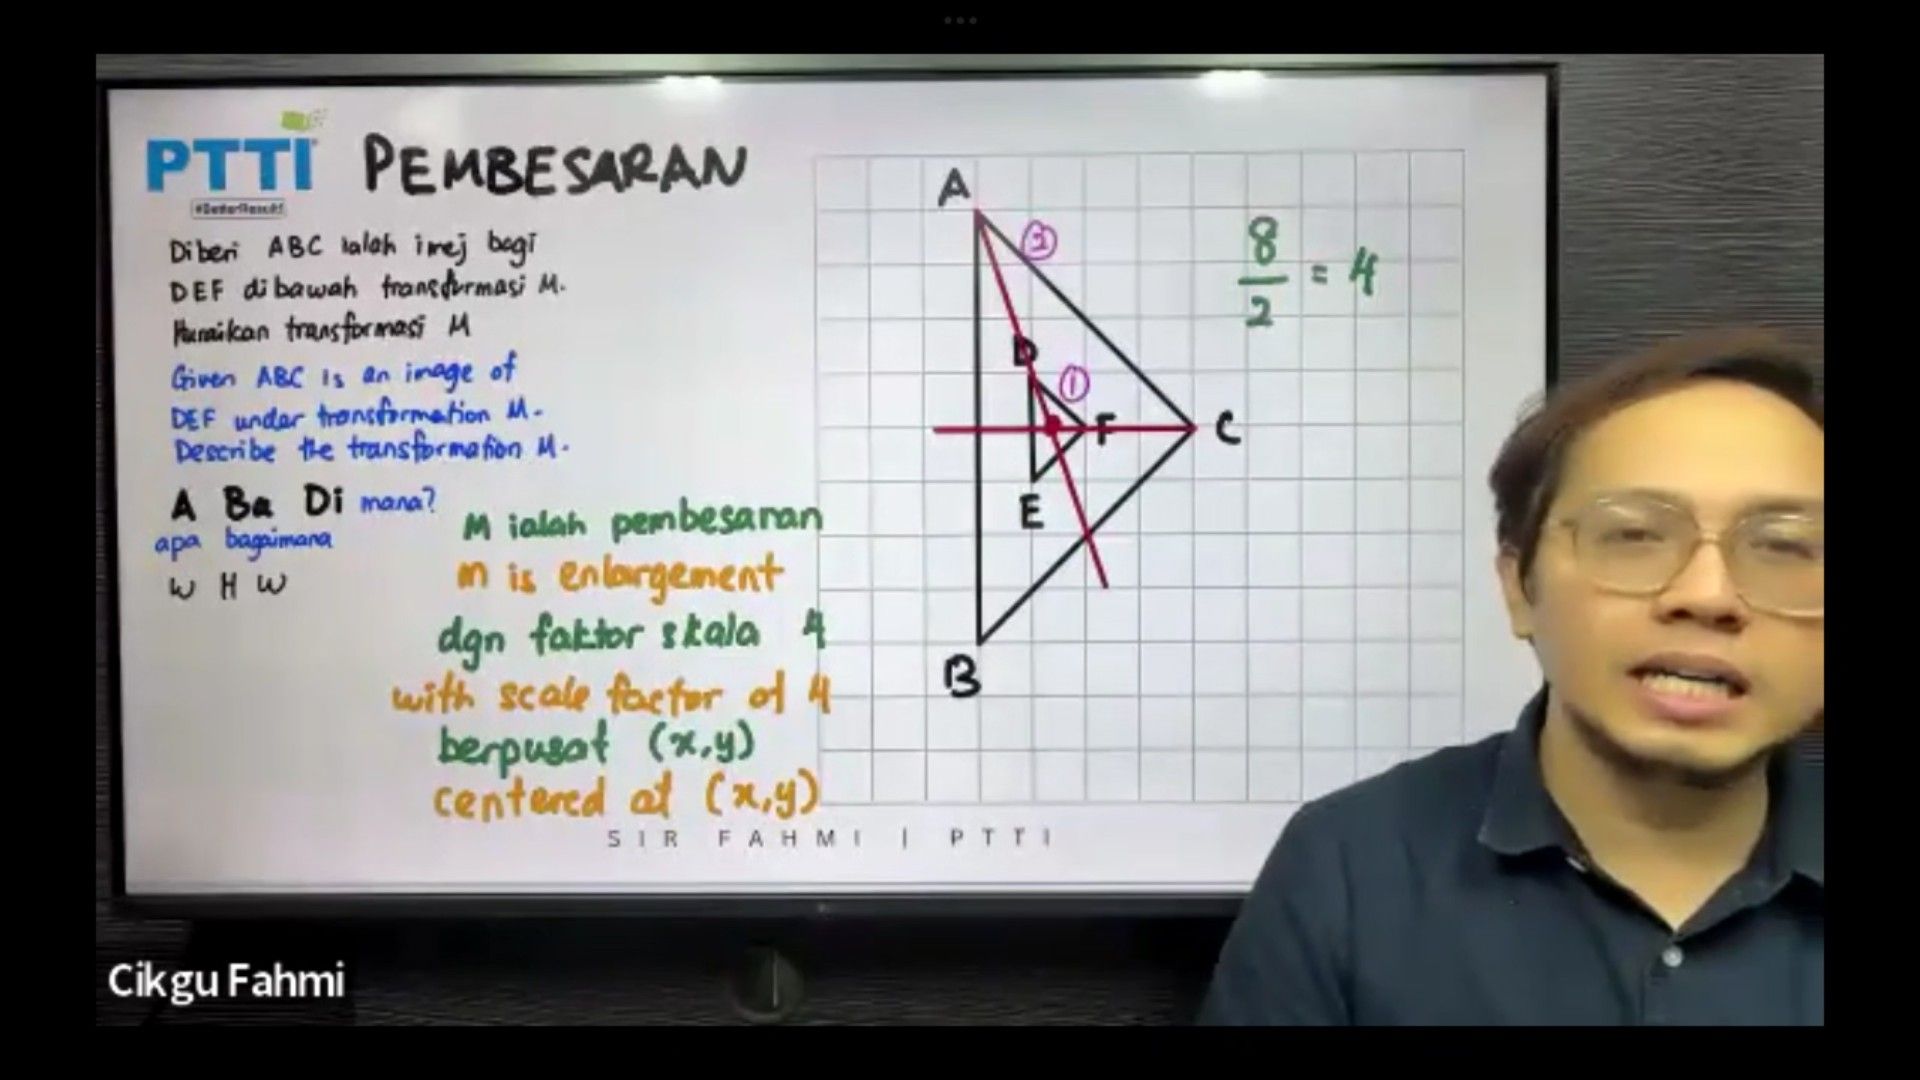 PTTI
#BetterResult
PEMBESARAN
Diberi ABC ialah imej bagi
DEF dibawah transformasi M.
Huraikan transformasi M
Given ABC is an image of
DEF under transformation M.
Describe the transformation M.
A Ba Di mana?
apa bagaimana
W H W
M ialah pembesaran
m is enlargement
dgn faktor skala 4
with scale factor of 4
berpusat (x,y)
centered at (x,y)
A
D
F
C
E
B
8
2
= 4
①
SIR FAHMI | PTTI
Cikgu Fahmi